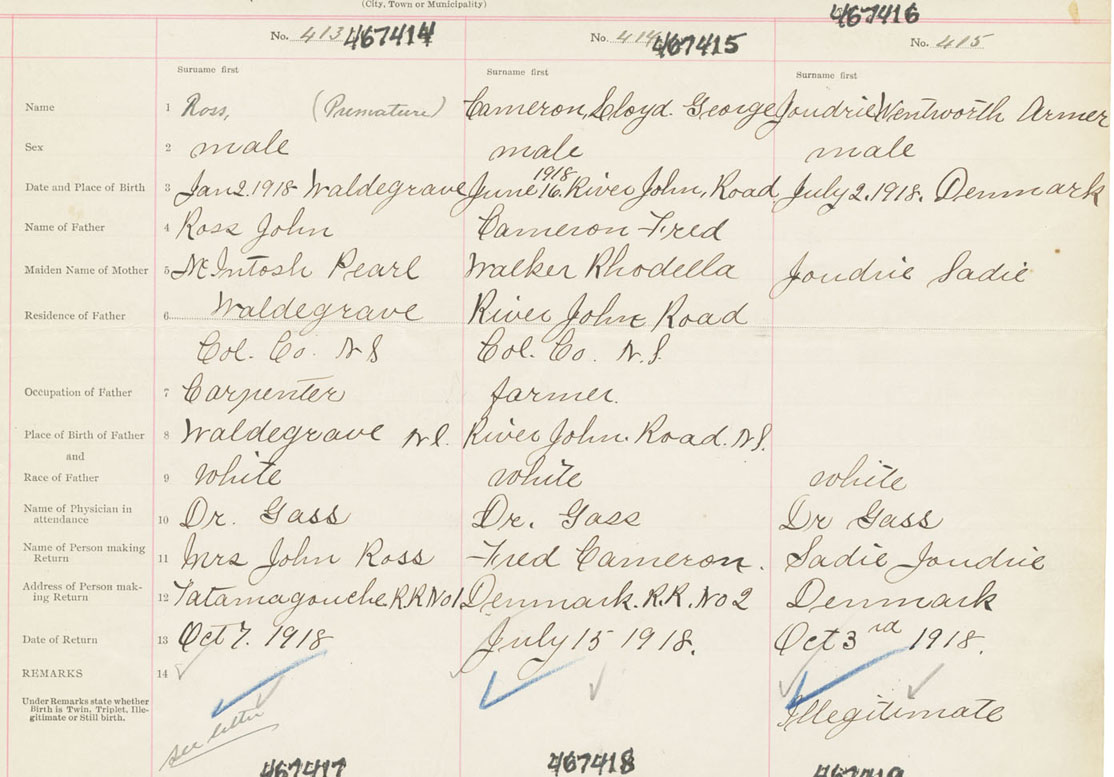 (City, Town or Municipality)
467416
No. 413 467414 No. 414 467415 No. 415
Surname first Surname first Surname first
Name 1 Ross, (Premature) Cameron, Lloyd. George Joudrie Wentworth Armer
Sex 2 male male male
1918
Date and Place of Birth 3 Jan 2. 1918 Waldegrave June 16. River John, Road July 2. 1918. Denmark
Name of Father 4 Ross John Cameron Fred
Maiden Name of Mother 5 McIntosh Pearl Walker Rhodella Joudrie Sadie
Residence of Father 6 Waldegrave River John Road
Col. Co. N S Col. Co. N.S.
Occupation of Father 7 Carpenter farmer.
Place of Birth of Father 8 Waldegrave N S. River John. Road. N S.
and
Race of Father 9 white white white
Name of Physician in
attendance 10 Dr. Gass Dr. Gass Dr Gass
Name of Person making
Return 11 Mrs John Ross Fred Cameron. Sadie Joudrie
Address of Person mak-
ing Return 12 Tatamagouche. R.R No 1 Denmark. R.R. No 2 Denmark
Date of Return 13 Oct 7. 1918 July 15 1918. Oct 3rd 1918.
REMARKS 14
Under Remarks state whether
Birth is Twin, Triplet, Ille-
gitimate or Still birth.
see letter Illegitimate
467417 467418 467419